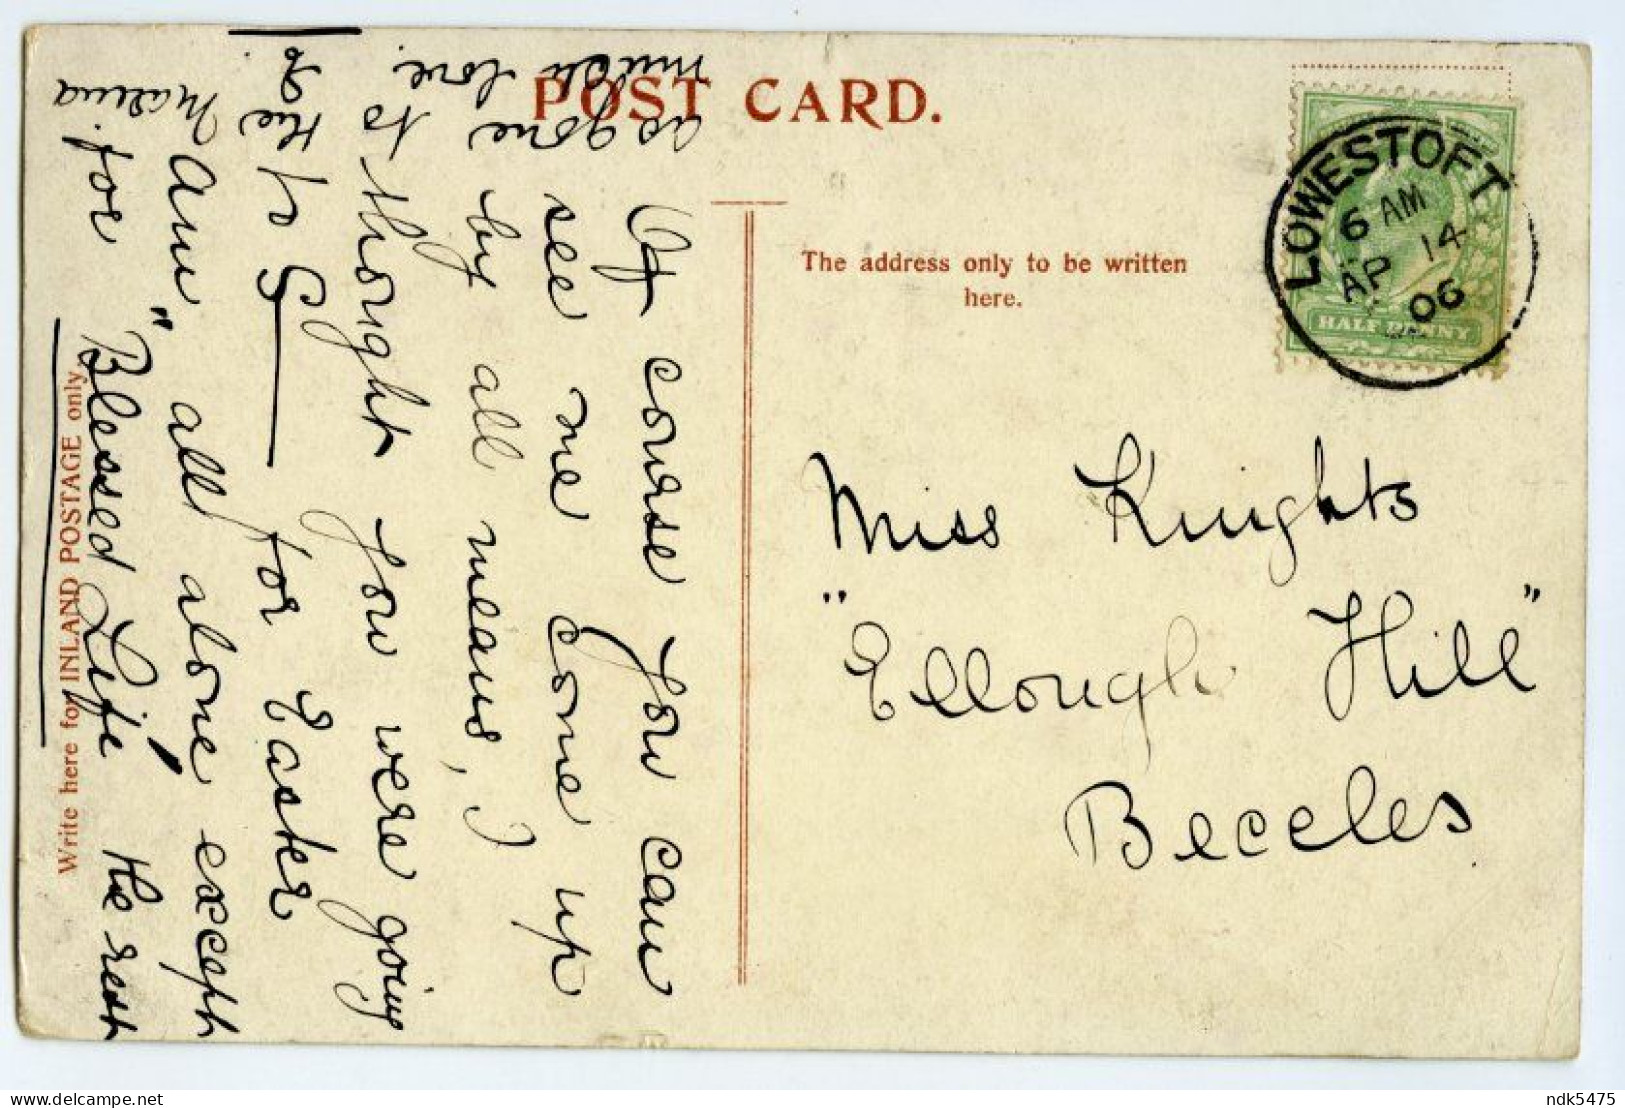 POST CARD.
The address only to be written
here.
Write here for INLAND POSTAGE only.
LOWESTOFT
6 AM
AP 14
06
HALF PENNY
Miss Knights
"Ellough Hill"
Beccles
Of course you can
see me come up
by all means, I
thought you were going
to G— for Easter
Am all alone except
for "Blessed Life" the rest
as gone
to the
much love.
ndk5475